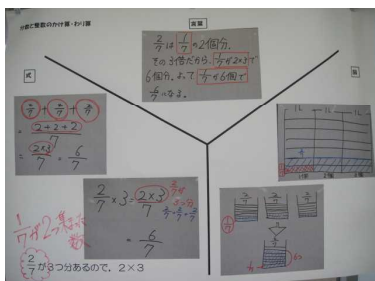 分数と整数のかけ算・わり算
言葉
2/7は1/7の2個分。
その3倍だから、1/7が2×3で
6個分。よって1/7が6個で
6/7になる。
式
2/7 + 2/7 + 2/7
= 2+2+2/7
= 2×3/7 = 6/7
2/7×3 = 2×3/7
= 6/7
1/7が2つ集まった
数
2/7が3つ分あるので、2×3
図
1L 1L 1L
2/7 2/7 2/7
1/7